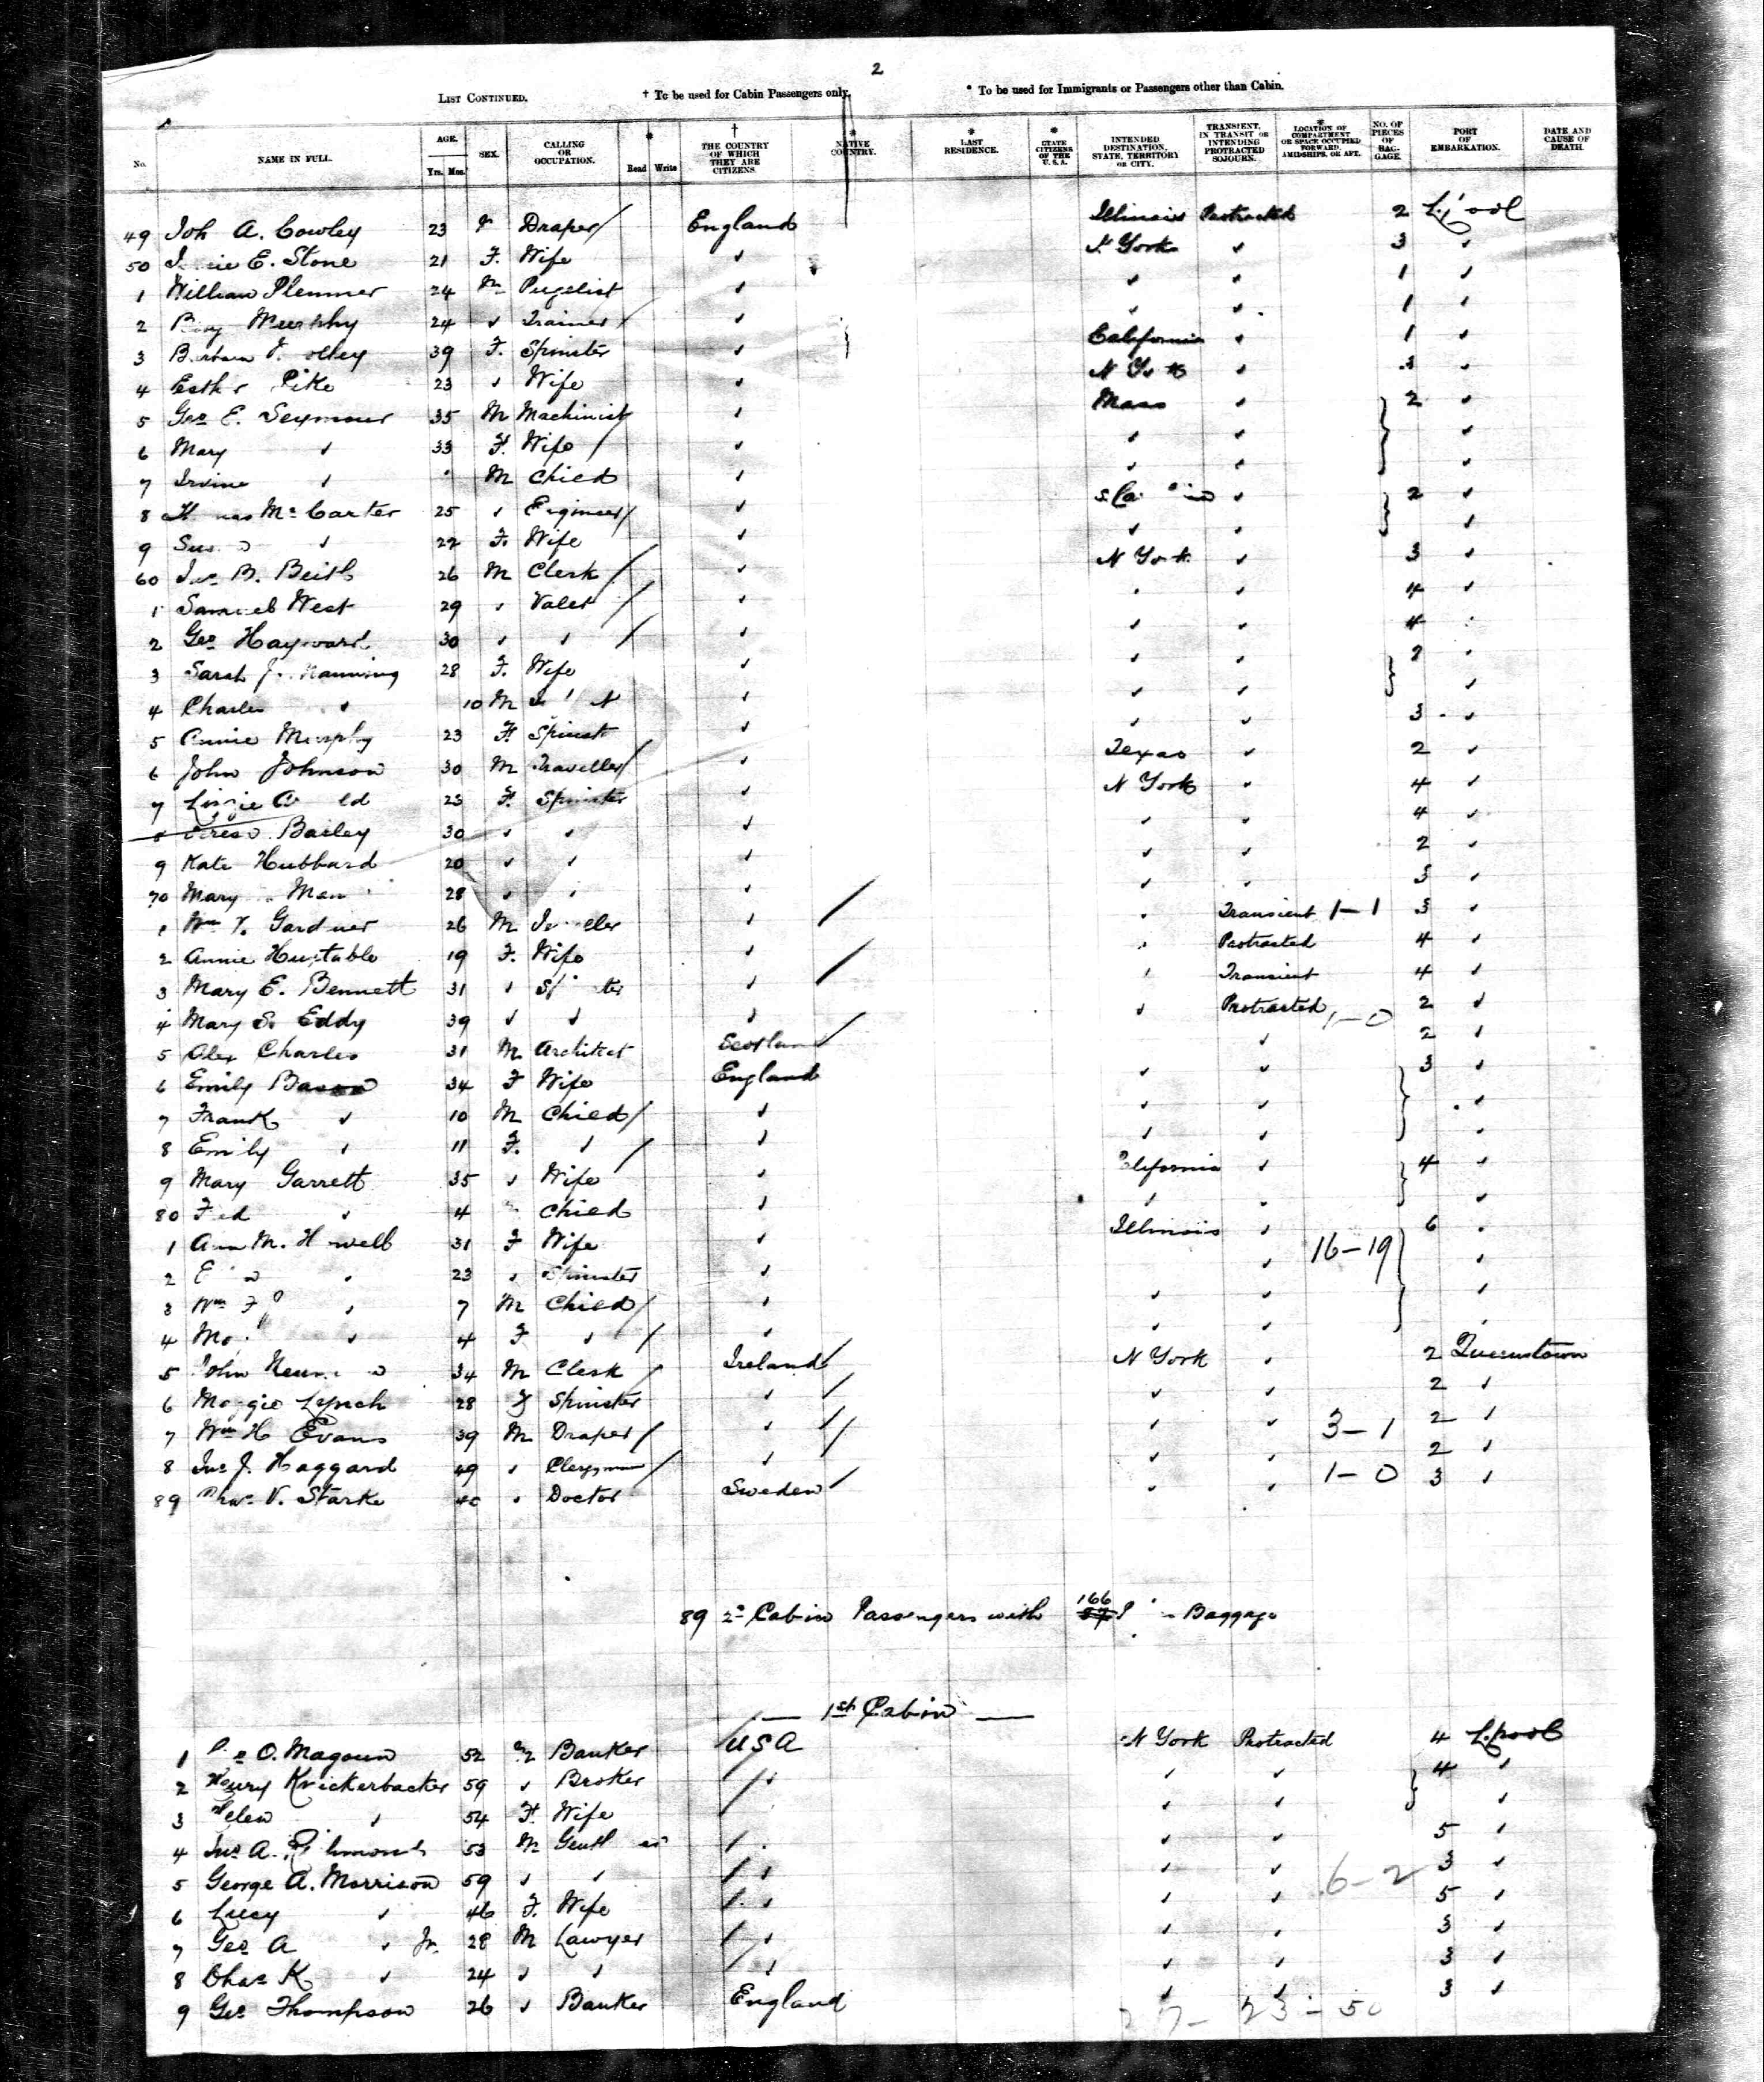 2
LIST CONTINUED. † To be used for Cabin Passengers only. * To be used for Immigrants or Passengers other than Cabin.
No. NAME IN FULL. AGE. Yrs. Mos. SEX. CALLING OR OCCUPATION. * Read Write † THE COUNTRY OF WHICH THEY ARE CITIZENS. * NATIVE COUNTRY. * LAST RESIDENCE. * STATE CITIZENS OF THE U.S.A. INTENDED DESTINATION, STATE, TERRITORY OR CITY. TRANSIENT, IN TRANSIT OR INTENDING PROTRACTED SOJOURN. * LOCATION OF COMPARTMENT OR SPACE OCCUPIED FORWARD, AMIDSHIPS, OR AFT. NO. OF PIECES OF BAGGAGE. PORT OF EMBARKATION. DATE AND CAUSE OF DEATH.
49 Joh A. Cowley 23 Draper / England Illinois Protracted 2 L'pool
50 E. Stone 21 F. Wife ✓ N. York ✓ 3 ✓
1 William Plemmer 24 M Pugelist ✓ ✓ ✓ 1 ✓
2 Murphy 24 ✓ Trainer / ✓ ✓ ✓ 1 ✓
3 39 F. Spinster ✓ California ✓ 1 ✓
4 Pike 23 ✓ Wife ✓ ✓ ✓
5 Geo E. Seymour 35 M Machinist ✓ Mass ✓ 2 ✓
6 Mary ✓ 33 F. Wife / ✓ ✓ ✓ ✓
7 Irvine ✓ M Child ✓ ✓ ✓ ✓
8 Mc Carter 25 ✓ Engineer / ✓ ✓ 2 ✓
9 ✓ 22 F. Wife ✓ ✓ ✓ ✓
60 Jno B. Beith 26 M Clerk / ✓ N York ✓ 3 ✓
1 Samuel West 29 ✓ Valet / ✓ ✓ 4 ✓
2 Geo Hayward 30 ✓ ✓ / ✓ ✓ ✓ 4
3 Sarah J. Manning 28 F. Wife ✓ ✓ ✓ 2
4 Charles ✓ 10 M ✓ ✓ ✓ ✓
5 Annie Murphy 23 F. Spinst ✓ ✓ ✓ 3 ✓
6 John Johnson 30 M Traveller / ✓ Texas ✓ 2 ✓
7 Lizzie 23 F. Spinster ✓ N York ✓ 4 ✓
8 Bailey 30 ✓ ✓ ✓ ✓ ✓ 4 ✓
9 Kate Hubbard 20 ✓ ✓ ✓ ✓ ✓ 2 ✓
70 Mary 28 ✓ ✓ ✓ ✓ 3 ✓
1 Wm Gardner 26 M ✓ / Transient 1–1 3 ✓
2 Annie Huxtable 19 F. Wife ✓ Protracted 4 ✓
3 Mary E. Bennett 31 ✓ ✓ / Transient 4 ✓
4 Mary S. Eddy 39 ✓ ✓ ✓ ✓ Protracted 1–0 2 ✓
5 Alex Charles 31 M Architect Scotland / ✓ 2 ✓
6 Emily Bason 34 F Wife England ✓ ✓ 3 ✓
7 Frank ✓ 10 M Child / ✓ ✓ ✓ ✓
8 Emily ✓ 11 F. ✓ / ✓ ✓ ✓
9 Mary Garrett 35 ✓ Wife ✓ California ✓ 4 ✓
80 ✓ 4 Child ✓ ✓ ✓ ✓
1 Ann M. 31 F Wife ✓ Illinois ✓ 6
2 23 ✓ Spinster ✓ ✓ 16–19 ✓
3 Wm 7 M Child / ✓ ✓ ✓ ✓
4 ✓ 4 F ✓ / ✓ ✓ ✓
5 John 34 M Clerk / Ireland / N York ✓ 2 Queenstown
6 Maggie Lynch 28 F Spinster ✓ / ✓ ✓ 2 ✓
7 Wm H Evans 39 M Draper / ✓ / ✓ ✓ 3–1 2 ✓
8 Jno J. Haggard 49 ✓ Clergyman / ✓ / ✓ ✓ 2 ✓
89 V. Starke 40 ✓ Doctor Sweden / ✓ ✓ 1–0 3 ✓
89 2nd Cabin Passengers with 166 Baggage
1st Cabin
1 O. Magoun 52 M Banker USA N York Protracted 4 L.pool
2 Henry Knickerbacker 59 ✓ Broker / ✓ ✓ ✓ 4 ✓
3 Helen ✓ 54 F. Wife ✓ ✓ ✓
4 Jno A. 53 M / ✓ ✓ 5 ✓
5 George A. Morrison 59 ✓ ✓ / ✓ ✓ ✓ 6–2 3 ✓
6 Lucy ✓ 46 F. Wife / ✓ ✓ ✓ 5 ✓
7 Geo A ✓ Jr. 28 M Lawyer / ✓ ✓ ✓ 3 ✓
8 Chas K ✓ 24 ✓ ✓ / ✓ ✓ ✓ 3 ✓
9 Geo Thompson 26 ✓ Banker England ✓ ✓ 3 ✓
27– 23–50